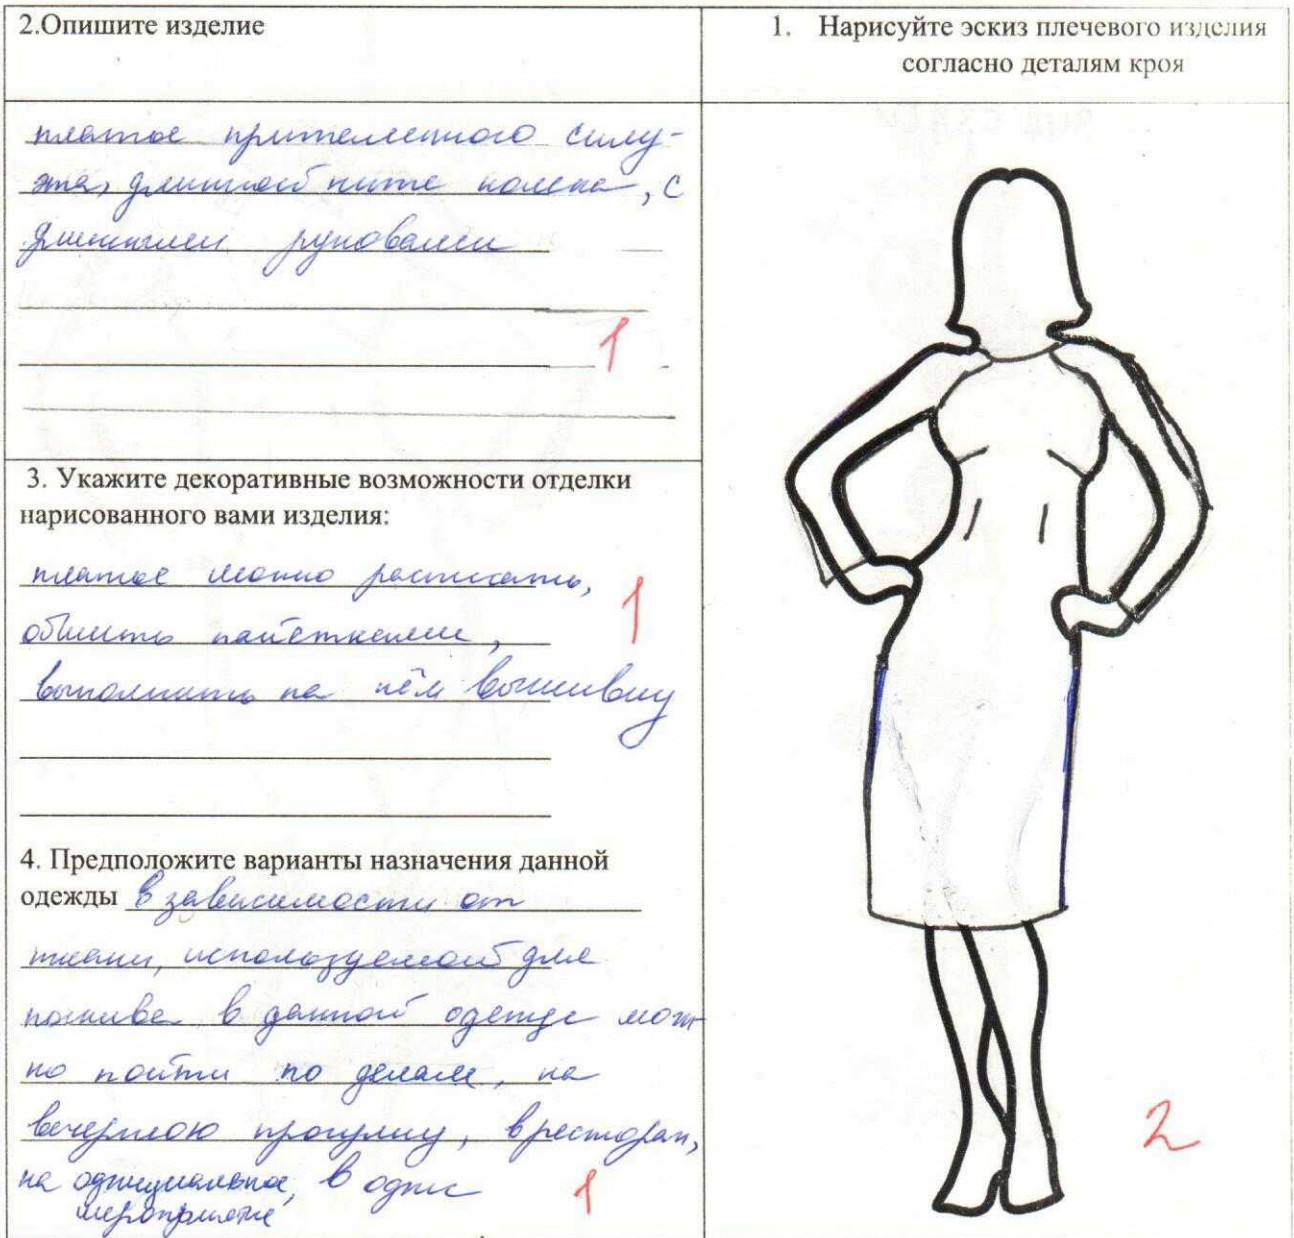 2.Опишите изделие
платье прителенного силу-
эта, длинной ниже колена, с
длинными рукавами
1
3. Укажите декоративные возможности отделки
нарисованного вами изделия:
платье можно расписать,
обшить пайетками,
1
выполнить на нём вышивку
4. Предположите варианты назначения данной
одежды в зависимости от
ткани, используемой для
пошива в данной одежде мож-
но пойти по делам, на
вечернюю прогулку, в ресторан,
на официальное, в офис
мероприятие
1
1. Нарисуйте эскиз плечевого изделия
согласно деталям кроя
2